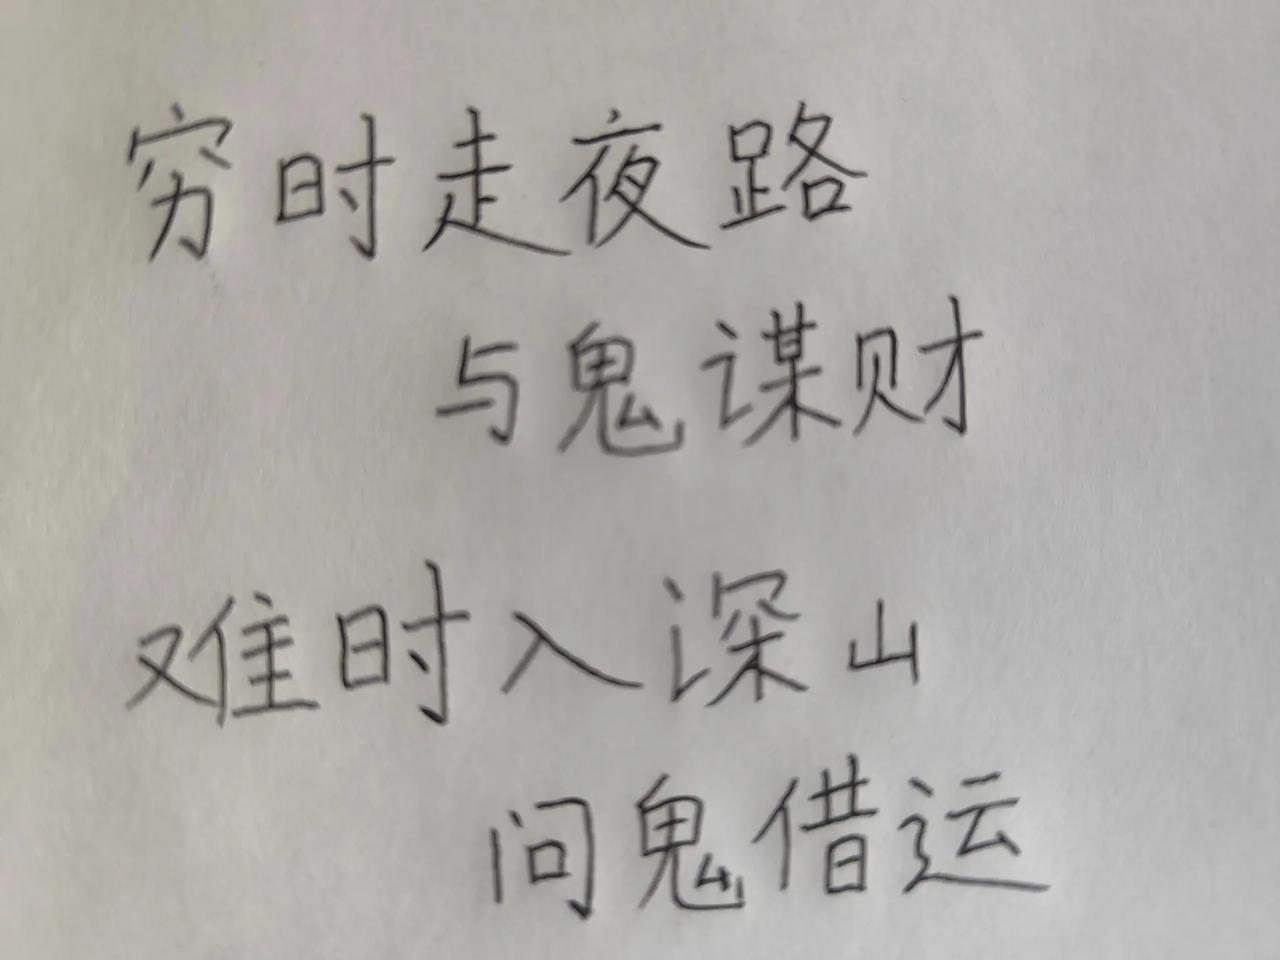 穷时走夜路
与鬼谋财
难时入深山
问鬼借运